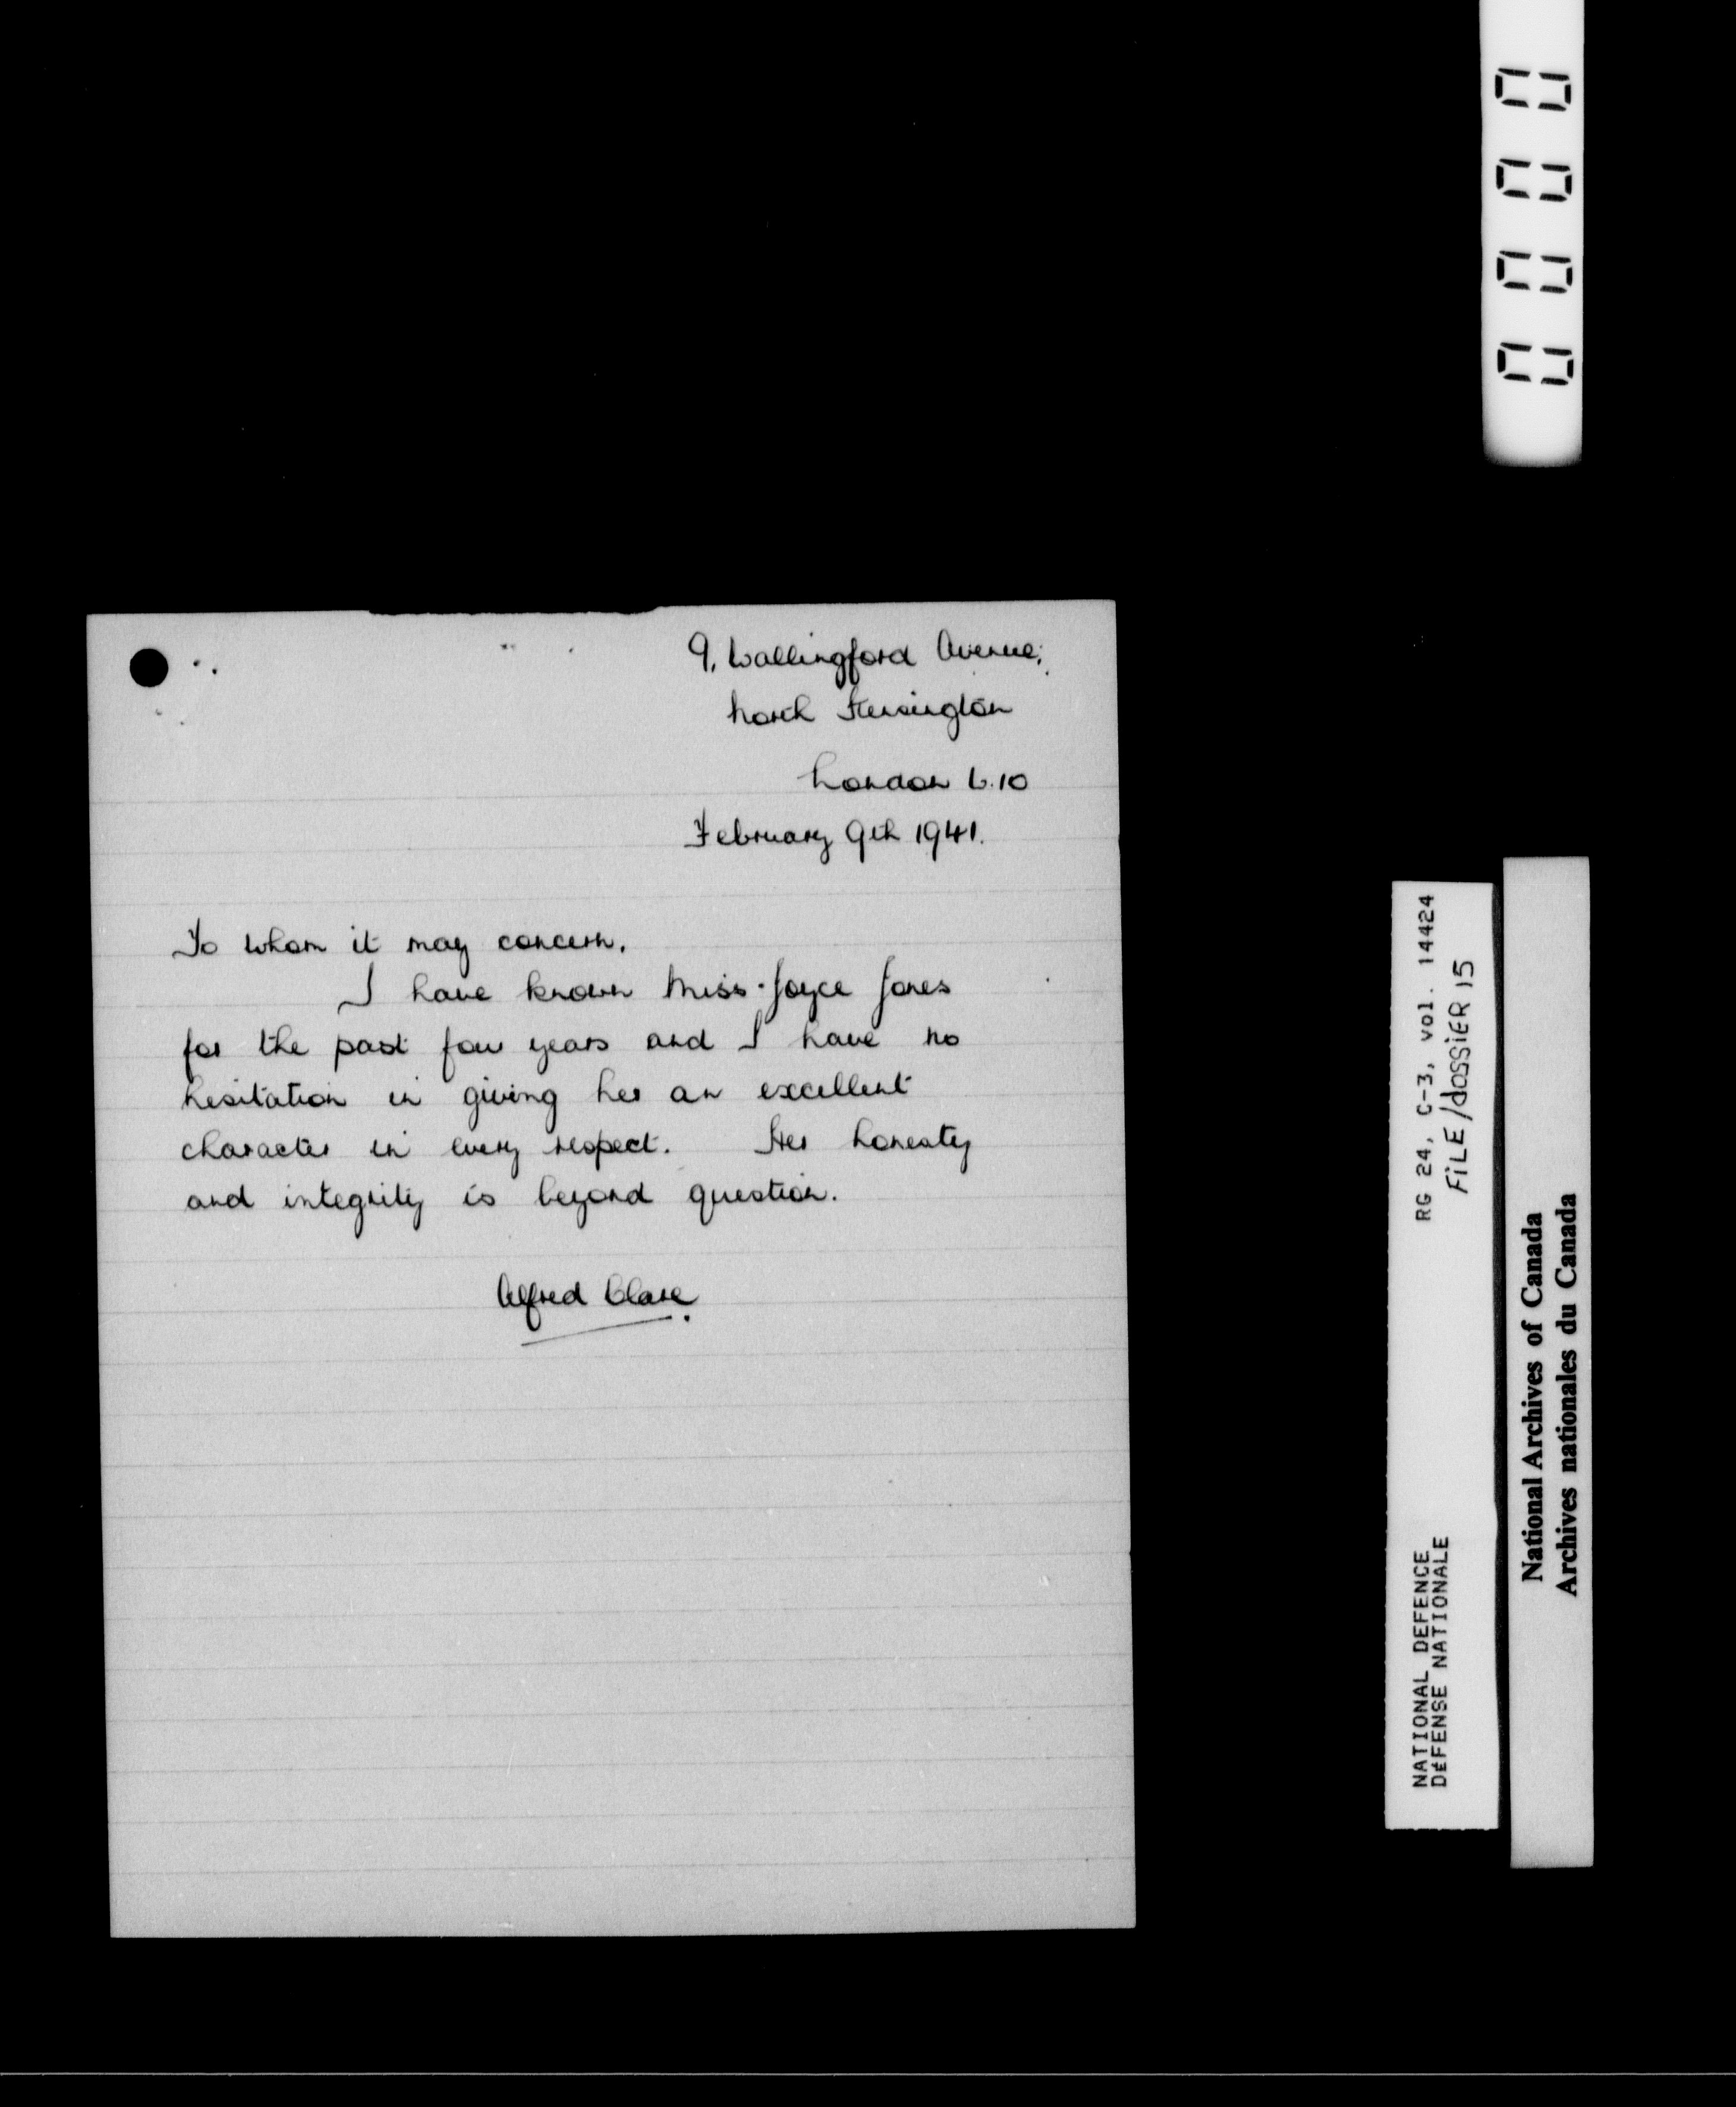 9, Wallingford Avenue,
North Kensington
London W.10
February 9th 1941.
To whom it may concern,
I have known Miss Joyce Jones
for the past four years and I have no
hesitation in giving her an excellent
character in every respect. Her honesty
and integrity is beyond question.
Alfred Clare.
0000
RG 24, C-3, vol. 14424
FILE/dossier 15
NATIONAL DEFENCE
DÉFENSE NATIONALE
National Archives of Canada
Archives nationales du Canada